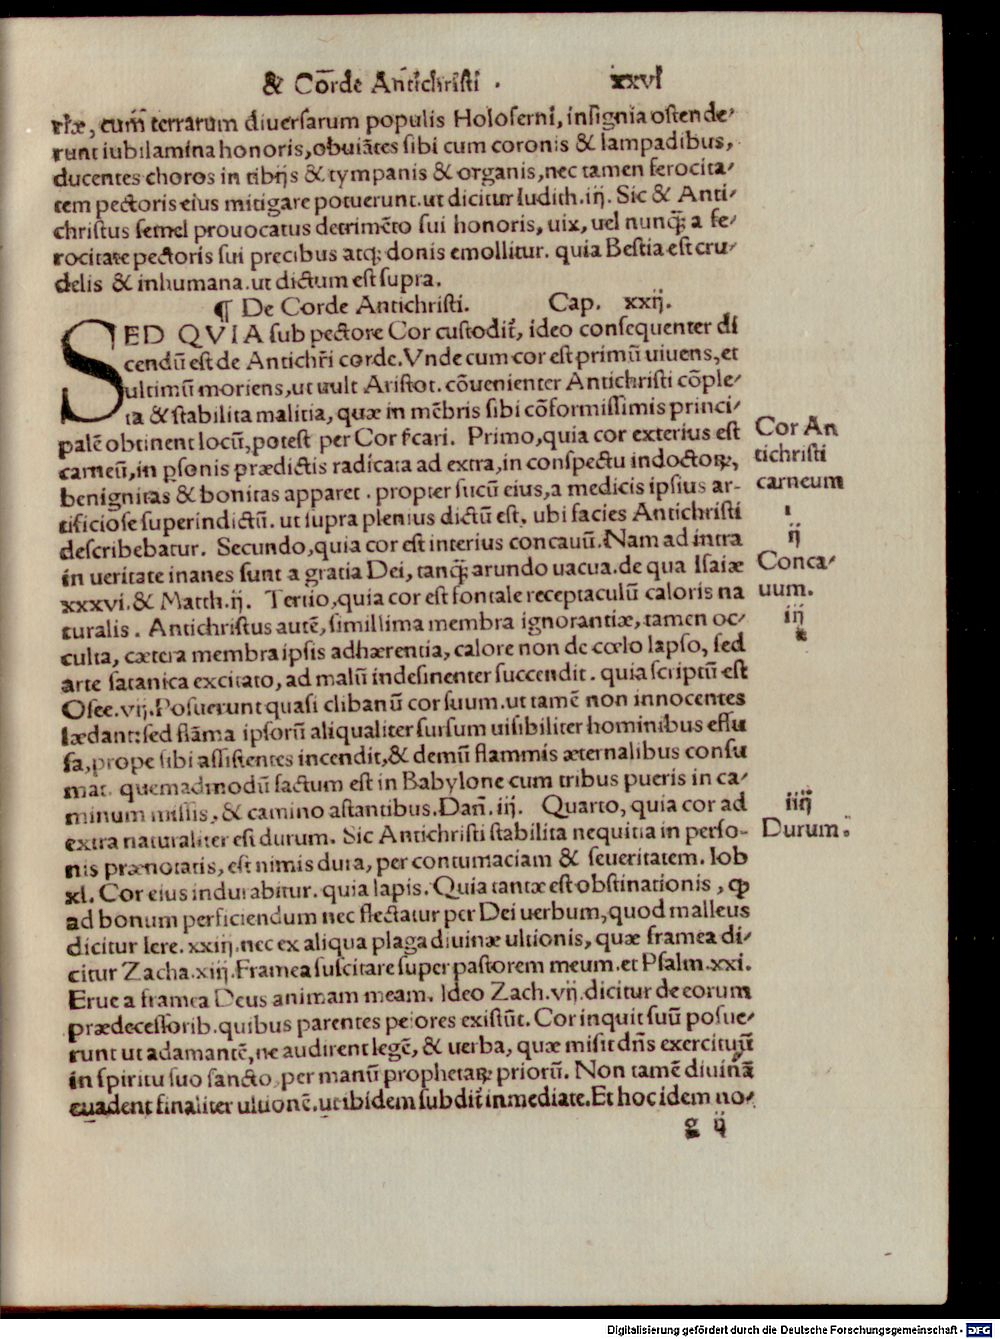 & Cōrde Antīchristi . xxvi
riæ, cum̄ terrarum diuersarum populis Holoferni, insignia ostende⸗
runt iubilamina honoris, obuiātes sibi cum coronis & lampadibus,
ducentes choros in tibijs & tympanis & organis, nec tamen ferocita⸗
tem pectoris eius mitigare potuerunt. ut dicitur Iudith. iij. Sic & Anti⸗
christus semel prouocatus detrimēto sui honoris, uix, uel nunq̄ꝫ a fe⸗
rocitate pectoris sui precibus atqꝫ donis emollitur. quia Bestia est cru⸗
delis & inhumana. ut dictum est supra.
¶ De Corde Antichristi. Cap. xxij.
SED QVIA sub pectore Cor custodit̄, ideo consequenter di
cendū est de Antichr̄i corde. Vnde cum cor est primū uiuens, et
ultimū moriens, ut uult Aristot. cōuenienter Antichristi cōple⸗
ta & stabilita malitia, quæ in mēbris sibi cōformissimis princi⸗
palē obtinent locū, potest per Cor f̄cari. Primo, quia cor exterius est
carneū, in ꝑsonis prædictis radicata ad extra, in conspectu indoctoꝝ,
benignitas & bonitas apparet. propter sucū eius, a medicis ipsius ar-
tificiose superindictū. ut supra plenius dictū est, ubi facies Antichristi
describebatur. Secundo, quia cor est interius concauū. Nam ad intra
in ueritate inanes sunt a gratia Dei, tanq̄ꝫ arundo uacua. de qua Isaiæ
xxxvi. & Matth. ij. Tertio, quia cor est fontale receptaculū caloris na
turalis. Antichristus autē, simillima membra ignorantiæ, tamen oc⸗
culta, cætera membra ipsis adhærentia, calore non de cœlo lapso, sed
arte satanica excitato, ad malū indesinenter succendit. quia scriptū est
Osee. vij. Posuerunt quasi clibanū cor suum. ut tamē non innocentes
lædant: sed flāma ipsorū aliqualiter sursum uisibiliter hominibus effu
sa, prope sibi assistentes incendit, & demū flammis æternalibus consu
mat. quemadmodū factum est in Babylone cum tribus pueris in ca⸗
minum missis, & camino astantibus. Dan̄. iij. Quarto, quia cor ad
extra naturaliter est durum. Sic Antichristi stabilita nequitia in perso-
nis prænotatis, est nimis dura, per contumaciam & seueritatem. Iob
xl. Cor eius indurabitur. quia lapis. Quia tantæ est obstinationis, ꝙ
ad bonum perficiendum nec flectatur per Dei uerbum, quod malleus
dicitur Iere. xxiij. nec ex aliqua plaga diuinæ ultionis, quæ framea di⸗
citur Zacha. xiij. Framea suscitare super pastorem meum. et Psalm. xxi.
Erue a framea Deus animam meam. Ideo Zach. vij. dicitur de eorum
prædecessorib. quibus parentes peiores existūt. Cor inquit suū posue⸗
runt ut adamantē, ne audirent legē, & uerba, quæ misit dn̄s exercituū
in spiritu suo sancto, per manū prophetaꝝ priorū. Non tamē diuinā
euadent finaliter ultionē. ut ibidem subdit̄ inmediate. Et hoc idem no⸗
g ij
Cor An
tichristi
carneum
i
ij
Conca⸗
uum.
iij
iiij
Durum.
Digitalisierung gefördert durch die Deutsche Forschungsgemeinschaft - DFG